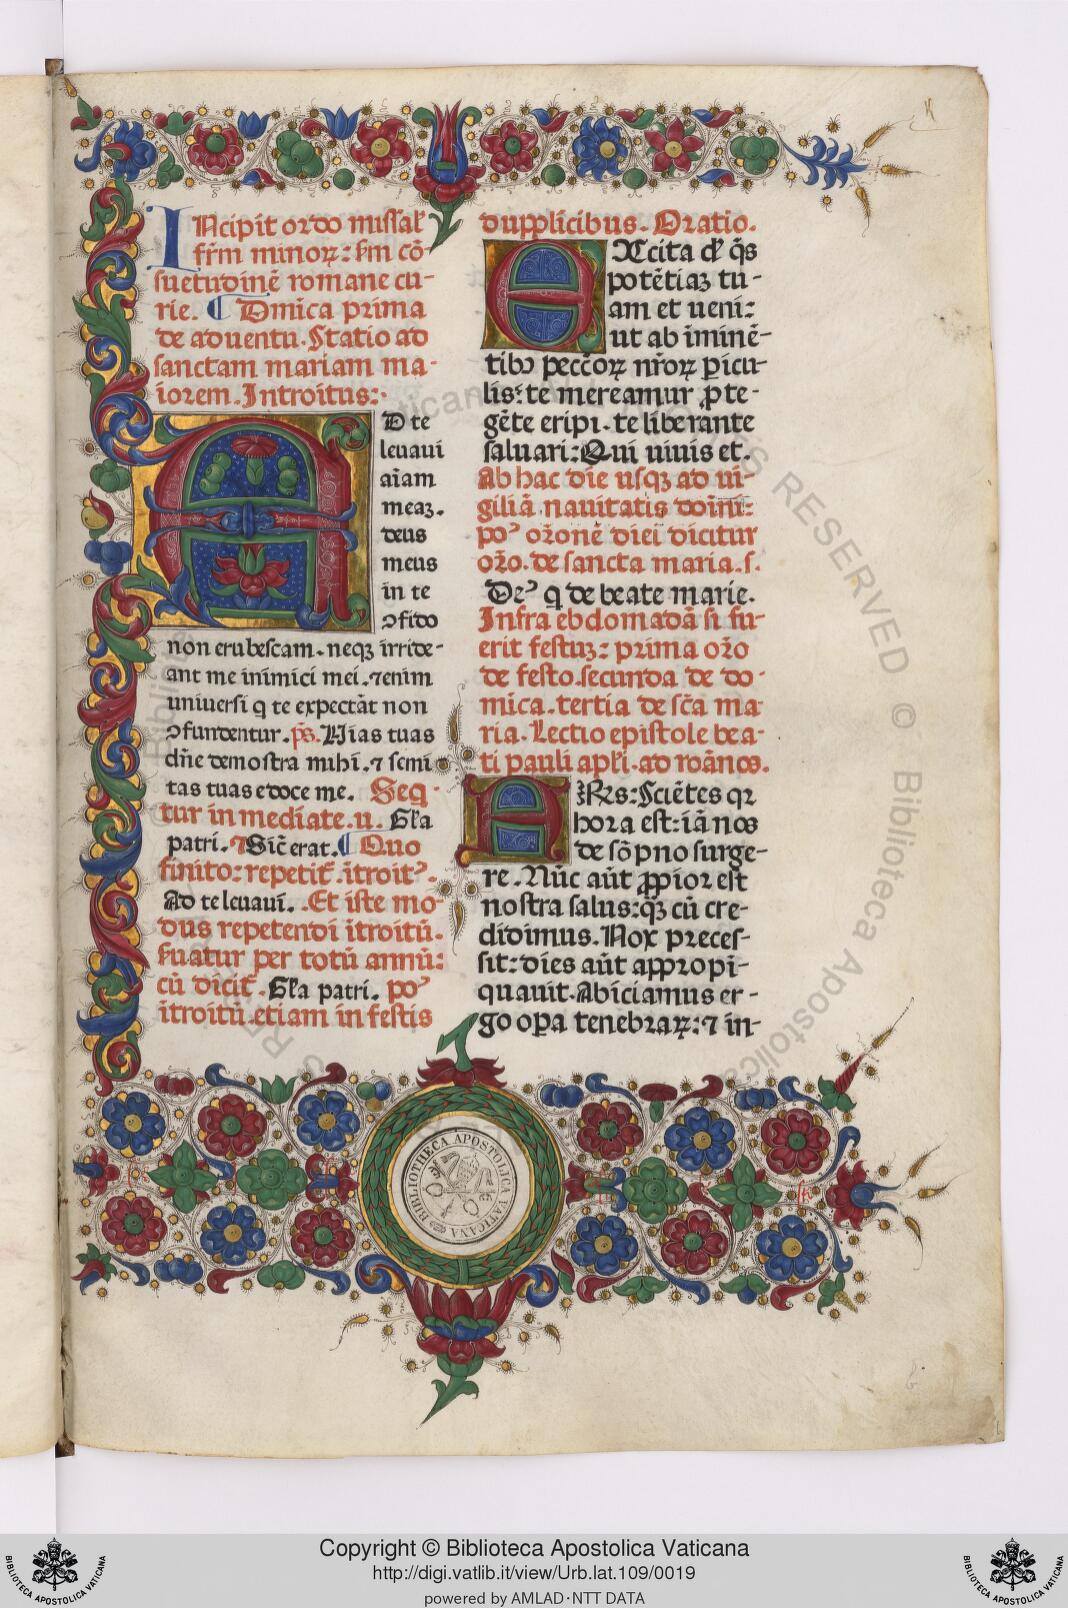 INcipit ordo missal᷒
fr̄m minoꝝ: ẜm cō-
suetudinē romane cu-
rie. ¶ Dm̄ica prima
de aduentu. Statio ad
sanctam mariam ma-
iorem. Introitus:
AD te
leuaui
aīam
meaꝫ.
deus
meus
in te
ↄfido
non erubescam. neqꝫ irride-
ant me inimici mei. ⁊enim
uniuersi q te expectāt non
ↄfundentur. p̄s. Vias tuas
dn̄e demostra mihī. ⁊ semi
tas tuas edoce me. Seq-
tur in mediate. u. Gl̄a
patri. ⁊ Sic̄ erat. ¶ Quo
finito: repetit᷒. ītroitꝰ.
Ad te leuaui. Et iste mo-
dus repetendi ītroitū.
ẜuatur per totū annū:
cū dicit᷒. Gl̄a patri. poꝰ
ītroitū. etiam in festis
dupplicibus. Oratio.
EXcita d᷒ q̄s
potētiaꝫ tu-
am et ueni:
ut ab iminē-
tibꝰ pecc̄oꝝ nr̄oꝝ ꝑicu-
lis: te mereamur ꝓte-
gēte eripi. te liberante
saluari: Qui uiuis et.
Ab hac die usqꝫ ad ui-
giliā nauitatis domī:
poꝰ or̄onē diei dicitur
or̄o. de sancta maria. s.
Deꝰ q de beate marie.
Infra ebdomadā si fu-
erit festuꝫ: prima or̄o
de festo. secunda de do-
mica. tertia de sc̄a ma
ria. Lectio epistole bea-
ti pauli apl̄i. ad roānos.
FRs: Sciētes qꝛ
hora est: iā nos
de sōpno surge-
re. Nūc aūt ꝓpior est
nostra salus: qꝫ cū cre-
didimus. Nox preces-
sit: dies aūt appropi-
quauit. Abiciamus er-
go oꝑa tenebraꝝ: ⁊ in-
BIBLIOTHECA APOSTOLICA VATICANA
Copyright © Biblioteca Apostolica Vaticana
http://digi.vatlib.it/view/Urb.lat.109/0019
powered by AMLAD·NTT DATA